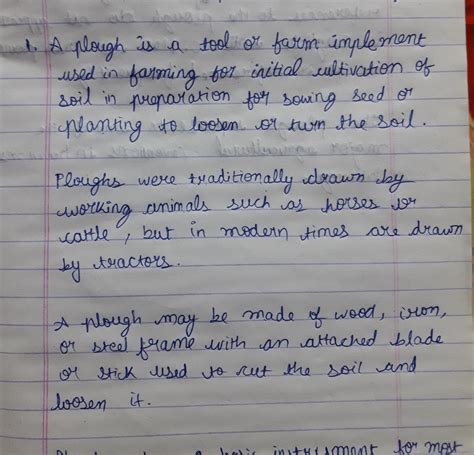 1. A plough is a tool or farm implement
used in farming for initial cultivation of
soil in preparation for sowing seed or
planting to loosen or turn the soil.
Ploughs were traditionally drawn by
working animals such as horses or
cattle, but in modern times are drawn
by tractors.
A plough may be made of wood, iron,
or steel frame with an attached blade
or stick used to cut the soil and
loosen it.
basic instrument for most